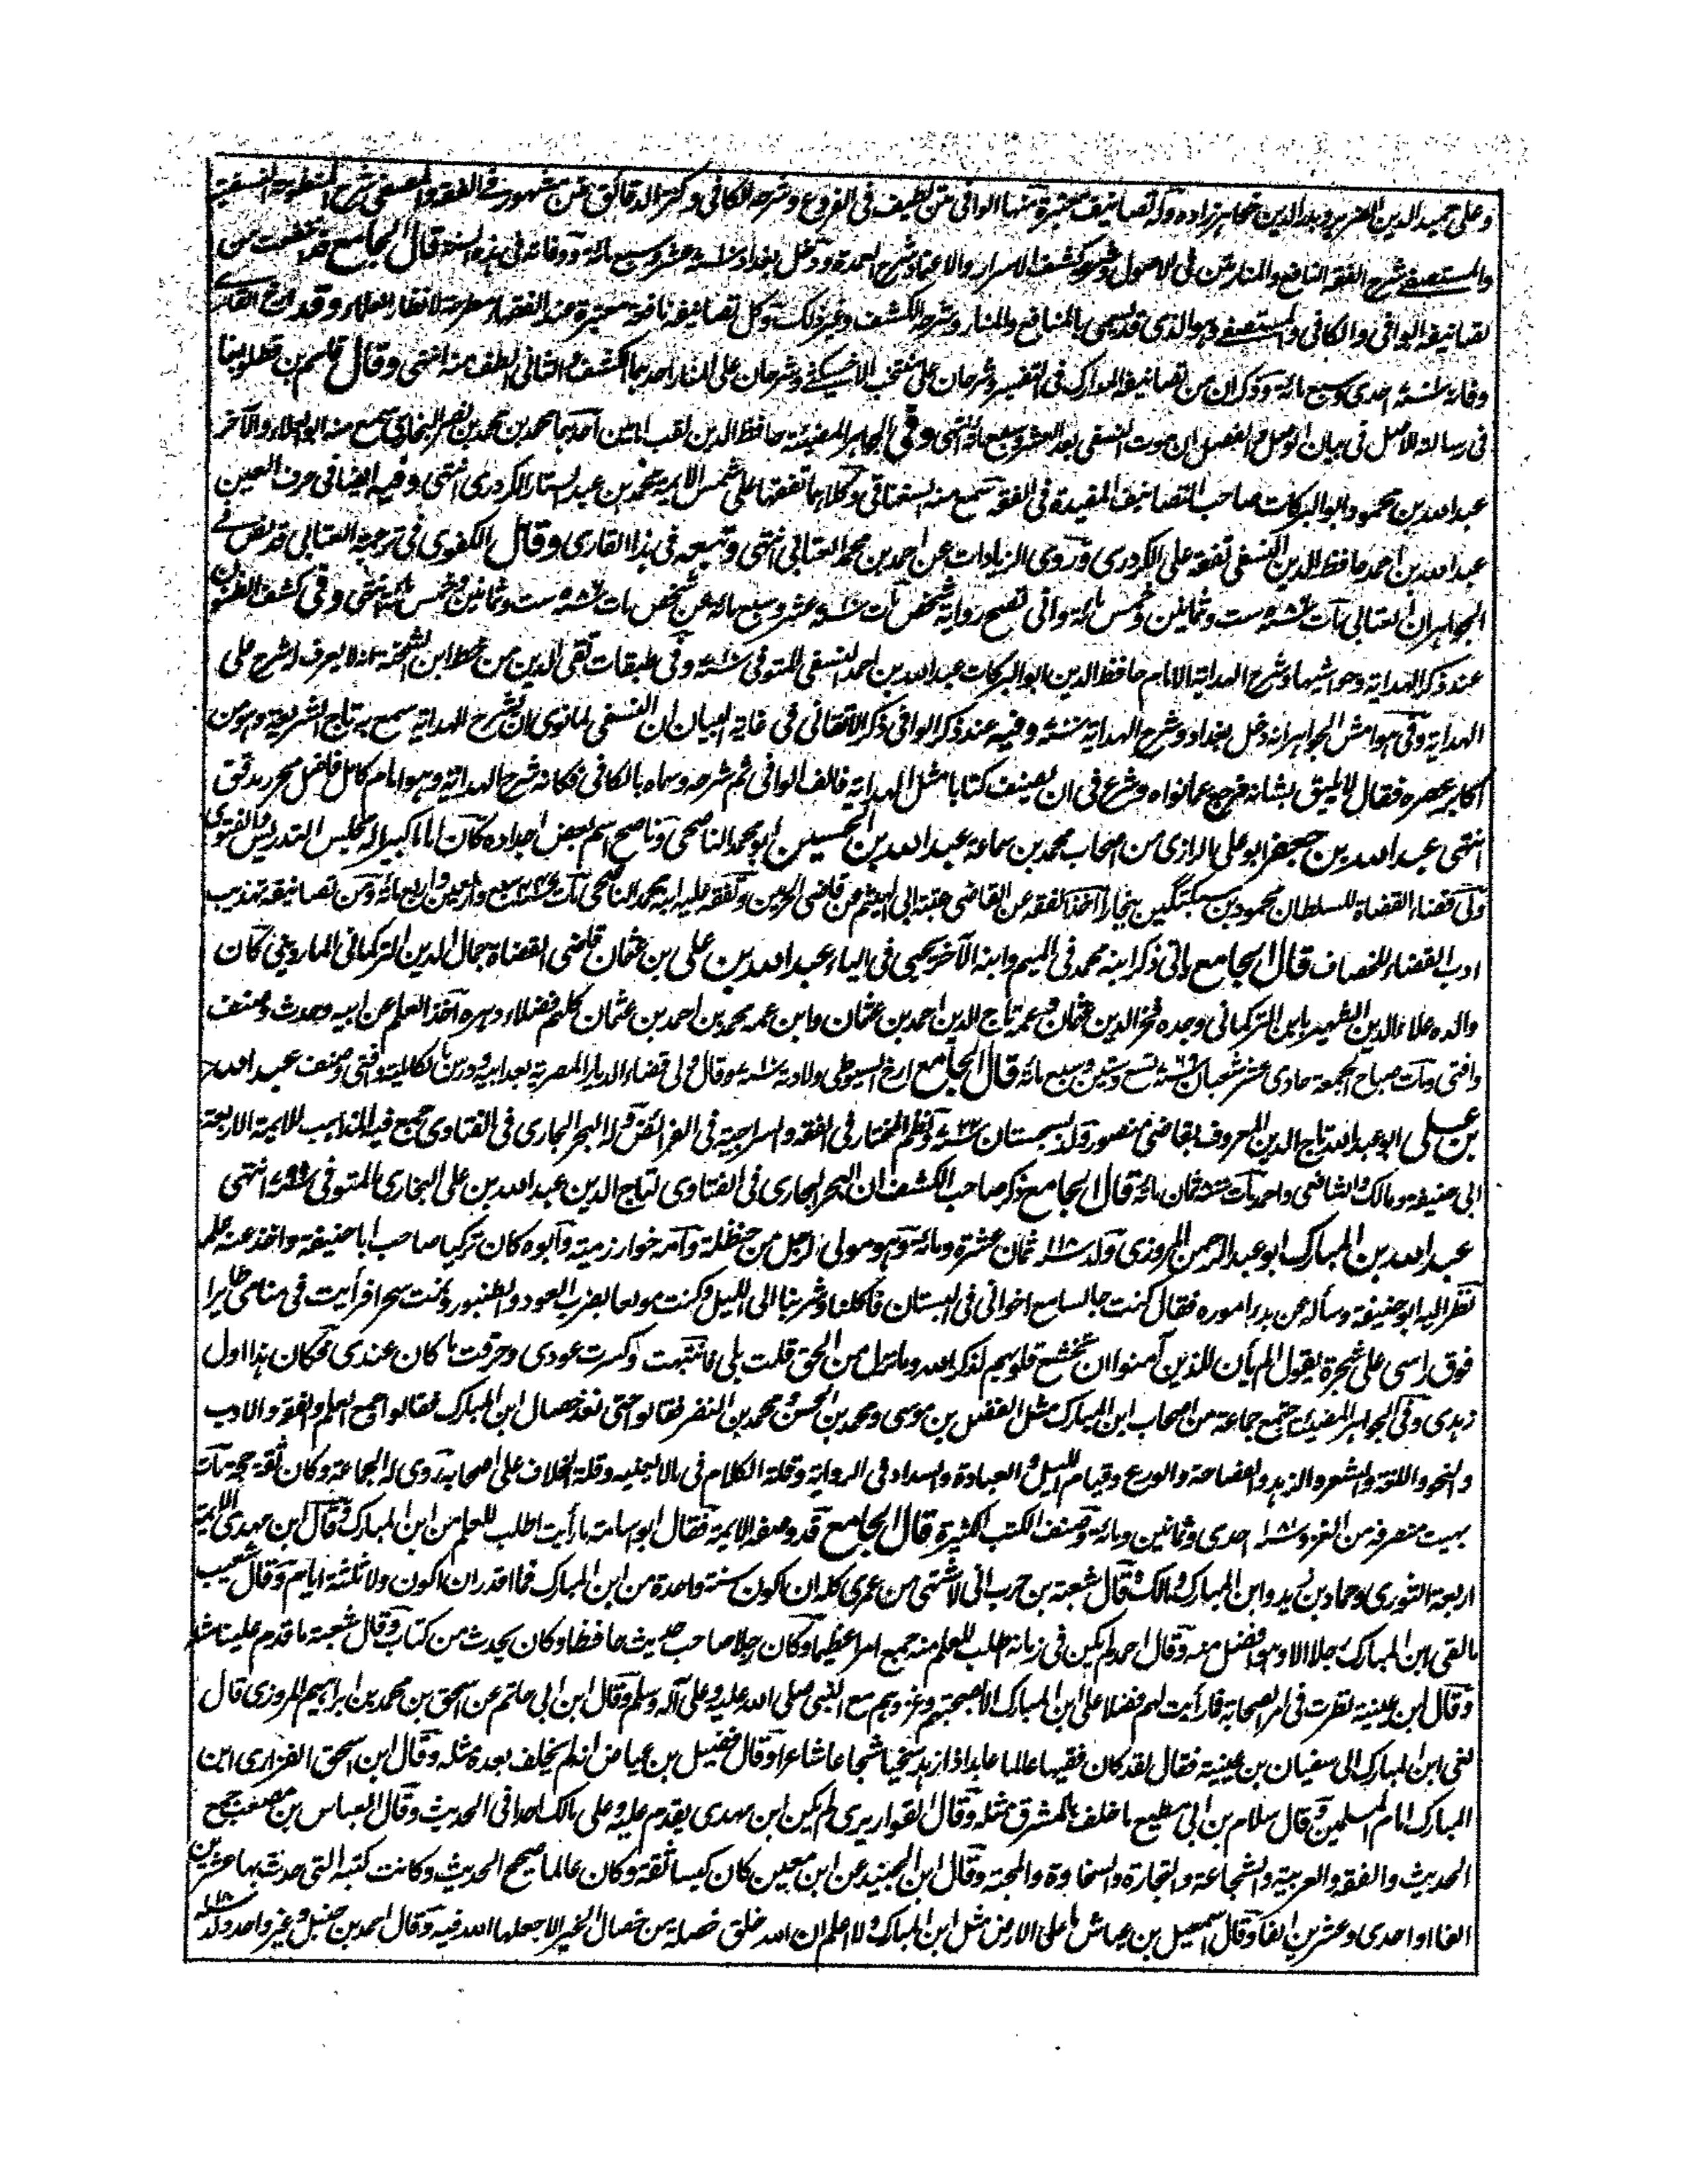 وعلى حميد الدين الضرير وبدر الدين خواهر زاده وله تصانيف معتبرة منها الوافى متن لطيف فى الفروع وشرحه الكافى وكنز الدقائق متن مشهور فى الفقه والمصفى شرح المنظومة النسفية
والمستصفى شرح الفقه النافع والمنار متن فى الاصول وشرحه كشف الاسرار والاعتماد شرح العمدة ودخل بغداد سنة ٧١٠ عشر وسبع مائة ووفاته فى هذه السنة قال الجامع قد انتفعت من
تصانيفه الوافى والكافى والمستصفى وهو الذى قد يسمى بالمنافع والمنار وشرحه الكشف وغير ذلك وكل تصانيفه نافعة معتبرة عند الفقهاء مطروحة لانظار العلماء وقد ارخ القارى
وفاته سنة ٧٠١ احدى وسبع مائة وذكر ان من تصانيفه المدارك فى التفسير وشرحان على منتخب الاخسيكثى وشرحان على المنار احدهما الكشف والثانى الطف منه انتهى وقال قاسم بن قطلوبغا
فى رسالة الاصل فى بيان الوصل والفصل ان موت النسفى بعد العشر وسبع مائة انتهى وفى الجواهر المضيئة حافظ الدين لقب امامين احدهما محمد بن محمد بن نصر البخارى سمع منه ابو العلاء والآخر
عبد الله بن محمود ابو البركات صاحب التصانيف المفيدة فى الفقه سمع منه السغناقى وكلاهما تفقها على شمس الايمة محمد بن عبد الستار الكردرى انتهى وفيه ايضا فى حرف العين
عبد الله بن احمد حافظ الدين النسفى تفقه على الكردرى وروى الزيادات عن احمد بن محمد العتابى انتهى وتبعه فى هذا القارى وقال الكفوى فى ترجمة العتابى قد نص فى
الجواهر ان العتابى مات سنة ٥٨٦ ست وثمانين وخمس مائة وانى تصح رواية شخص مات سنة ٧١٠ عشر وسبع مائة عن شخص مات سنة ٥٨٦ ست وثمانين وخمس مائة انتهى وفى كشف الظنون
عند ذكر الهداية وحواشيها وشرح الهداية الامام حافظ الدين ابو البركات عبد الله بن احمد النسفى المتوفى سنة ٧١٠ وفى طبقات تقى الدين من خط ابن الشحنة انه لا يعرف له شرح على
الهداية وفى هوامش الجواهر انه دخل بغداد وشرح الهداية سنة ٧٠٠ وفيه عند ذكر الوافى ذكر الاتقانى فى غاية البيان ان النسفى لما نوى ان يشرح الهداية سمع به تاج الشريعة وهو من
اكابر عصره فقال لا يليق بشانه فرجع عما نواه وشرع فى ان يصنف كتابا مثل الهداية فالف الوافى ثم شرحه وسماه بالكافى فكانه شرح الهداية وهو امام كامل فاضل محرر مدقق
انتهى عبد الله بن جعفر ابو على الرازى من اصحاب محمد بن سماعة عبد الله بن الحسين ابو محمد الناصحى وناصح اسم بعض اجداده كان اماما كبيرا له مجلس التدريس والفتوى
ولى قضاء القضاة للسلطان محمود بن سبكتگين ببخارا اخذ الفقه عن القاضى عتبة ابى الهيثم عن قاضى الحرمين وتفقه عليه ابنه محمد الناصحى مات سنة ٤٤٧ سبع واربعين واربع مائة ومن تصانيفه تهذيب
ادب القضاء للخصاف قال الجامع ياتى ذكر ابنه محمد فى الميم وابنه الآخر يحيى فى الياء عبد الله بن على بن عثمان قاضى القضاة جمال الدين التركمانى الماردينى كان
والده علاء الدين الشهير بابن التركمانى وجده فخر الدين عثمان وعمه تاج الدين احمد بن عثمان وابن عمه محمد بن احمد بن عثمان كلهم فضلاء دهره اخذ العلم عن ابيه وحدث وصنف
وافتى ومات صباح الجمعة حادى عشر شعبان سنة ٧٦٩ تسع وستين وسبع مائة قال الجامع ارخ السيوطى ولادته سنة ٧١٥ وقال ولى قضاء الديار المصرية بعد ابيه ودرس بالكاملية وافتى وصنف عبد الله
بن على ابو عبد الله تاج الدين المعروف بقاضى منصور ولد بسجستان سنة ٧٢٢ ونظم المختار فى الفقه والسراجية فى الفرائض وله البحر الجارى فى الفتاوى جمع فيه المذاهب للايمة الاربعة
ابى حنيفة ومالك والشافعى واحمد مات سنة ٨٠٠ ثمان مائة قال الجامع ذكر صاحب الكشف ان البحر الجارى فى الفتاوى لتاج الدين عبد الله بن على البخارى المتوفى سنة ٧٩٩ انتهى
عبد الله بن المبارك ابو عبد الرحمن المروزى ولد سنة ١١٨ ثمان عشرة ومائة وهو مولى لرجل من حنظلة وامه خوارزمية وابوه كان تركيا صاحب ابا حنيفة واخذ عنه علمه
نظر اليه ابو حنيفة وسأله عن بدء اموره فقال كنت جالسا مع اخوانى فى البستان فاكلنا وشربنا الى الليل وكنت مولعا بضرب العود والطنبور ونمت سحرا فرأيت فى منامى طايرا
فوق راسى على شجرة يقول الم يأن للذين آمنوا ان تخشع قلوبهم لذكر الله وما نزل من الحق قلت بلى فانتبهت وكسرت عودى وحرقت ما كان عندى فكان هذا اول
زهدى وفى الجواهر المضيئة اجتمع جماعة من اصحاب ابن المبارك مثل الفضل بن موسى ومحمد بن الحسن ومحمد بن النضر فقالوا حتى نعد خصال ابن المبارك فقالوا جمع العلم والفقه والادب
والنحو واللغة والشعر والزهد والفصاحة والورع وقيام الليل والعبادة والسداد فى الرواية وقلة الكلام فى ما لا يعنيه وقلة الخلاف على اصحابه روى له الجماعة وكان ثقة حجة مات
بهيت منصرفه من الغزو سنة ١٨١ احدى وثمانين ومائة وصنف الكتب الكثيرة قال الجامع قد وصفه الايمة فقال ابو اسامة ما رأيت اطلب للعلم من ابن المبارك وقال ابن مهدى الايمة
اربعة الثورى وحماد بن زيد وابن المبارك ومالك وقال شعبة بن حرب انى لاشتهى من عمرى كله ان اكون سنة واحدة من ابن المبارك فما اقدر ان اكون ولا ثلثة ايام وقال شعيب
ما لقى ابن المبارك رجلا الا وهو افضل منه وقال احمد لم يكن فى زمانه اطلب للعلم منه جمع امرا عظيما وكان رجلا صاحب حديث حافظا وكان يحدث من كتاب وقال شعبة ما قدم علينا مثله
وقال ابن عيينة نظرت فى امر الصحابة فما رأيت لهم فضلا على ابن المبارك الا صحبتهم وغزوهم مع النبى صلى الله عليه وعلى آله وسلم وقال ابن ابى حاتم عن اسحق بن محمد بن ابراهيم المروزى قال
نعى ابن المبارك الى سفيان بن عيينة فقال لقد كان فقيها عالما عابدا زاهدا سخيا شجاعا شاعرا وقال فضيل بن عياض انه لم يخلف بعده مثله وقال ابن اسحق الفزارى ابن
المبارك امام المسلمين وقال سلام بن ابى مطيع ما خلف بالمشرق مثله وقال القواريرى لم يكن ابن مهدى يقدم عليه وعلى مالك احدا فى الحديث وقال العباس بن مصعب جمع
الحديث والفقه والعربية والشجاعة والتجارة والسخاوة والمحبة وقال ابن الجنيد عن ابن معين كان كيسا ثقة وكان عالما صحيح الحديث وكانت كتبه التى حدث بها عشرين
الفا او احدى وعشرين الفا وقال اسمعيل بن عياش ما على الارض مثل ابن المبارك ولا اعلم ان الله خلق خصلة من خصال الخير الا جعلها الله فيه وقال احمد بن حنبل وغير واحد ولد سنة ١١٨